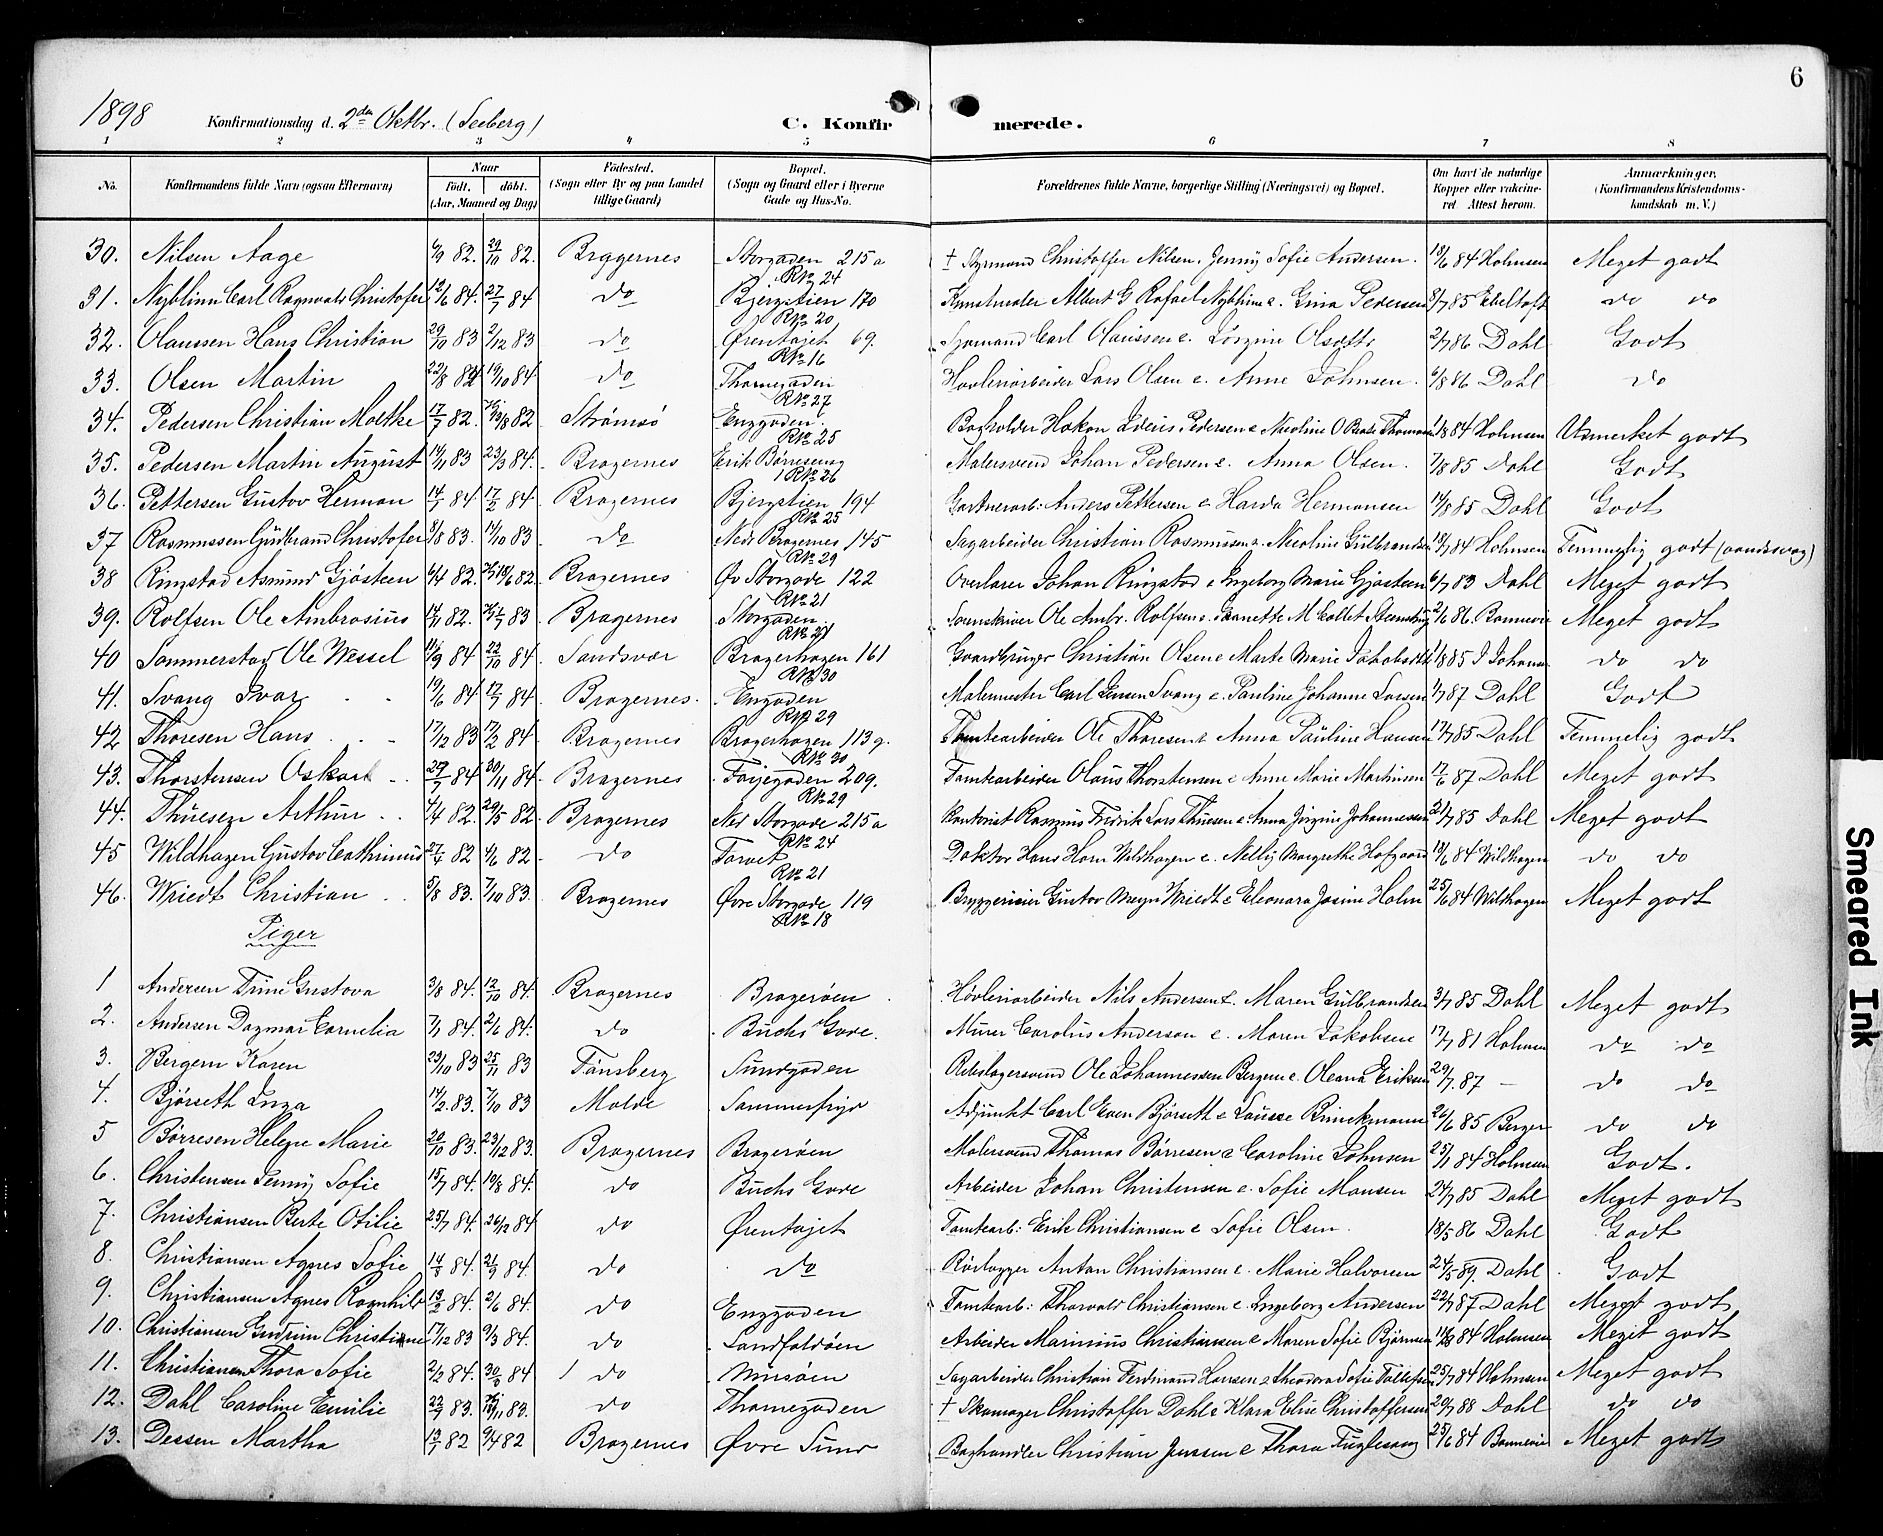 6
1898 Konfirmationsdag d. 2den Oktbr. (Seeberg) C. Konfirmerede.
1 2 3 4 5 6 7 8
No. Konfirmandens fulde Navn (ogsaa Efternavn) Naar født. døbt. (Aar, Maaned og Dag) Födested. (Sogn eller By og paa Landet tillige Gaard) Bopæl. (Sogn og Gaard eller i Byerne Gade og Hus-No. Forældrenes fulde Navne, borgerlige Stilling (Næringsvei) og Bopæl. Om havt de naturlige Kopper eller vaccineret. Attest herom. Anmærkninger. (Konfirmandens Kristendomskundskab m. V.)
30. Nilsen Aage 6/9 82. 29/10 82. Bragernes Storgaden 215a RN 24 † Styrmand Christoffer Nilsen. Jenny Sofie Andersen. 18/6 84 Holmsen Meget godt
31. Nyblinn Carl Ragnvald Christofer 12/6 84. 27/7 84 do Bjergstien 170 RN 20 Kunstmaler Albert G Rafael Nyblinn e. Gina Pedersen 8/7 85 Ebeltoft do do
32. Olaussen Hans Christian 29/10 83 2/12 83 do Ørentajet 69. RN 16 Sjømand Carl Olaussen e. Jørgine Olsdtr 2/7 86 Dahl Godt
33. Olsen Martin 22/8 84 19/10 84 do Thomegaden RN 27 Høvleriarbeider Lars Olsen e. Anne Johnsen. 6/8 86 Dahl do
34. Pedersen Christian Moltke 17/7 82. 82 Strømsø Enggaden. RN 25 Bogholder Hakon Pedersen e Nicoline O 1/8 84 Holmsen Udmerket godt
35. Pedersen Martin August 14/11 83 23/3 84. Bragernes Erik Børresensg RN 26 Malersvend Johan Pedersen e. Anna Olsen. 7/8 85 Dahl Godt
36. Pettersen Gustav Herman 14/1 84 17/2 84. Bragernes Bjergstien 194 RN 25 Gartnerarb: Anders Pettersen e Harda Hermansen 14/8 85 Dahl Godt
37 Rasmussen Gudbrand Christofer 8/8 83. 14/10 83 do Nedr Bragernes 145 RN 29 Sagarbeider Christian Rasmussen e. Nicoline Gulbrandsen 18/7 84 Holmsen Temmelig godt (aandssvag)
38 Ringstad Asmund Gjøsteen 6/4 82. 18/6 82. Bragernes Øv Storgade 122 RN 21 Overlærer Johan Ringstad e Ingeborg Marie Gjøsteen 6/7 83 Dahl Meget godt
39. Rolfsen Ole Ambrosius 14/11 82. 83 Bragernes Storgaden. RN 21 Sorenskriver Ole Ambr. Rolfsen e. Jeanette M Collet 2/6 86. Bonnevie Meget godt
40 Sommerstad Ole Wessel 11/9 84 22/10 84. Sandsvær Bragerhagen 161 RN 30 Gaardbruger Christian Olsen e Marte Marie Jakobsdtr 1/8 85 J Johans do do
41. Svang Ivar 19/6 84. 17/7 84. Bragernes. Engaden RN 29 Malermester Carl Jensen Svang e. Pauline Johanne Larsen 1/7 87 Dahl Godt
42 Thoresen Hans 17/12 83 17/2 84. Bragernes Bragerhagen 113g. RN 30 Tomtearbeider Ole Thoresen e Anna Pauline Hansen 17/7 85 Dahl Temmelig godt
43. Thorstensen Oskar 27/7 84 30/11 84. Bragernes Fajegaden 209. RN 29 Tomtearbeider Olaus Thorstensen e Anne Marie Martinsen 17/6 87 Dahl Meget godt
44. Thuesen Arthur 4/4 82. 29/5 82. Bragernes Ned Storgade 215a RN 24 Kontorist Rasmus Fredrik Lars Thuesen e Anna Jørgine Johannessen 21/7 85 Dahl Meget godt
45 Wildhagen Gustav Cathrinus 27/4 82 4/6 82. do Torvet RN 21 Doktor Hans Horn Wildhagen e. Nelly Margrethe Hofgaard 18/6 84 Wildhagen do do
46. Wriedt Christian 5/8 83. 7/10 83. Bragernes Øvre Storgade 119 RN 18 Bryggerieier Gustav Meyn Wriedt e Eleonora Josine Holm 25/6 84 Wildhagen Meget godt
Piger
1 Andersen Trine Gustava 3/8 84. 12/10 84. Bragernes Bragerøen Høvleriarbeider Nils Andersen e. Maren Gulbrandsen 3/7 85 Dahl Meget godt
2. Andersen Dagmar Cornelia 7/1 84. 2/6 84. do Buchs Gade. Murer Carolus Andersen e. Maren Jakobsen 17/7 81 Holmsen do do
3. Bergem Karen 23/10 83 25/11 83 Tønsberg Sundgaden Rebslagersvend Ole Johannessen Bergem e. Oleana Eriksen 29/7. 87 — do do
4. Bjørseth Inga 14/2 83. 7/10 83 Molde Sommerfryd Adjunkt Carl Even Bjørseth e Lousse Brinckmann 26/6 85 Berger do do
5 Børresen Helene Marie 20/10 83. 23/12 83. Bragernes Bragerøen Malersvend Thomas Børresen e Caroline Johnsen 25/7 84 Holmsen Godt.
6. Christensen Jenny Sofie 15/7 84. 19/8 84. do Buchs Gade Arbeider Johan Christensen e. Sofie Monsen 24/7 85 Dahl Meget godt
7. Christiansen Berte Otilie 25/7 84. 26/12 84 do Ørentajet Tomtearb: Erik Christiansen e Sofie Olsen. 18/5 86 Dahl Godt
8. Christiansen Agnes Sofie 14/8 84. 21/9 84. do do Rørlægger Anton Christiansen e. Marie Halvorsen 24/5 89. Dahl Godt
9. Christiansen Agnes Ragnhild 13/2 84. 2/6 84. do Enggaden Tomtearb: Thorvald Christiansen e. Ingeborg Andersen 22/7 87 Dahl Meget godt
10. Christiansen Gudrun Christiane 17/12 83 9/3 84. do Landfaldøen Arbeider Marinius Christiansen e Maren Sofie Bjørnsen 84 Holmsen Meget godt
11. Christiansen Thora Sofie 2/2 84. 84 do Musøen Sagarbeider Christian Ferdinand Hansen e Theodora Sofie 25/7 84 Holmsen Meget godt
12. Dahl Caroline Emilie 22/7 83. 83. do Thomegaden † Skomager Christoffer Dahl e Klara Elise Christoffersen 20/7 88 Dahl do do
13. Dessen Martha 13/1 82 9/4 82 Bragernes Øvre Sund Boghandler Christian Jenssen e Thora Fuglesang 25/6 84 Bonnevie Meget godt
Smeared Ink